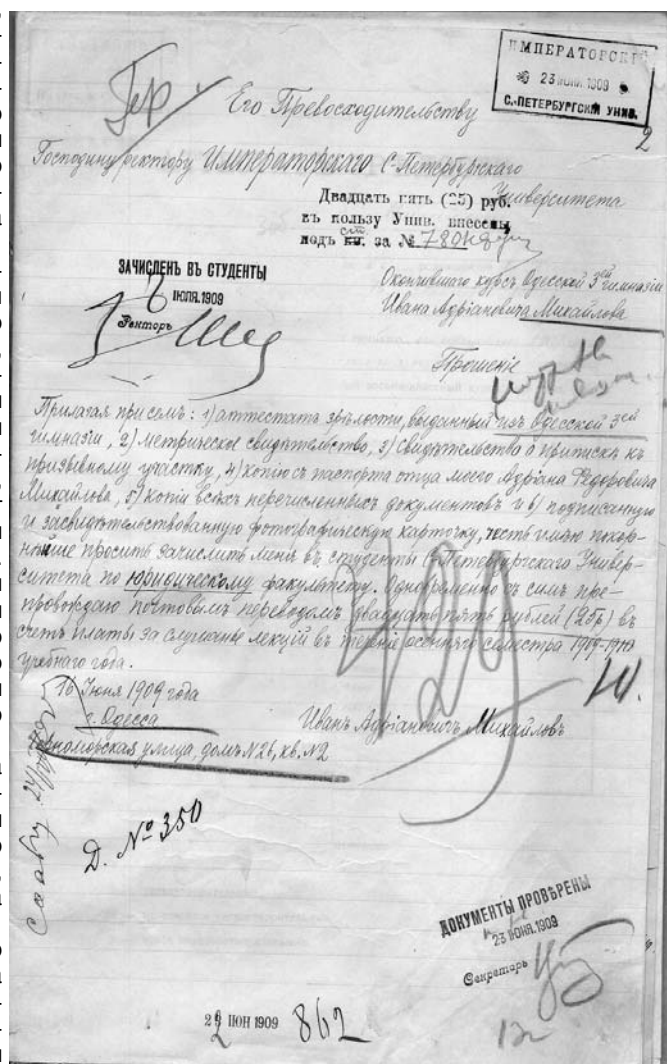 ИМПЕРАТОРСКІЙ
23 ИЮН. 1909
С.-ПЕТЕРБУРГСКІЙ УНИВ.
2
Его Превосходительству
Господину Ректору Императорскаго С-Петербургскаго
Университета
Двадцать пять (25) руб.
въ пользу Унив. внесены
подъ кв. за № 780
ЗАЧИСЛЕНЪ ВЪ СТУДЕНТЫ
ІЮЛЯ. 1909
Ректоръ
Окончившаго курсъ Одесской 3ей гимназіи
Ивана Адріановича Михайлова
Прошеніе
Прилагая при семъ: 1) аттестатъ зрѣлости, выданный изъ Одесской 3ей
гимназіи, 2) метрическое свидѣтельство, 3) Свидѣтельство о припискѣ къ
призывному участку, 4) копію съ паспорта отца моего Адріана Ѳедоровича
Михайлова, 5) копіи всѣхъ перечисленныхъ документовъ и 6) подписанную
и засвидѣтельствованную фотографическую карточку, честь имѣю покор-
нѣйше просить зачислить меня въ студенты С-Петербургскаго Универ-
ситета по юридическому факультету. Одновременно съ симъ пре-
провождаю почтовымъ переводомъ двадцать пять рублей (25р) въ
счетъ платы за слушаніе лекцій въ теченіе осенняго семестра 1909-1910
учебнаго года.
16 Іюня 1909 года
г. Одесса
Иванъ Адріановичъ Михайловъ
Черноморская улица, домъ N26, кв. N2
Д. № 350
ДОКУМЕНТЫ ПРОВѢРЕНЫ
23 ІЮНЯ. 1909
Секретарь
23 ІЮН 1909
862